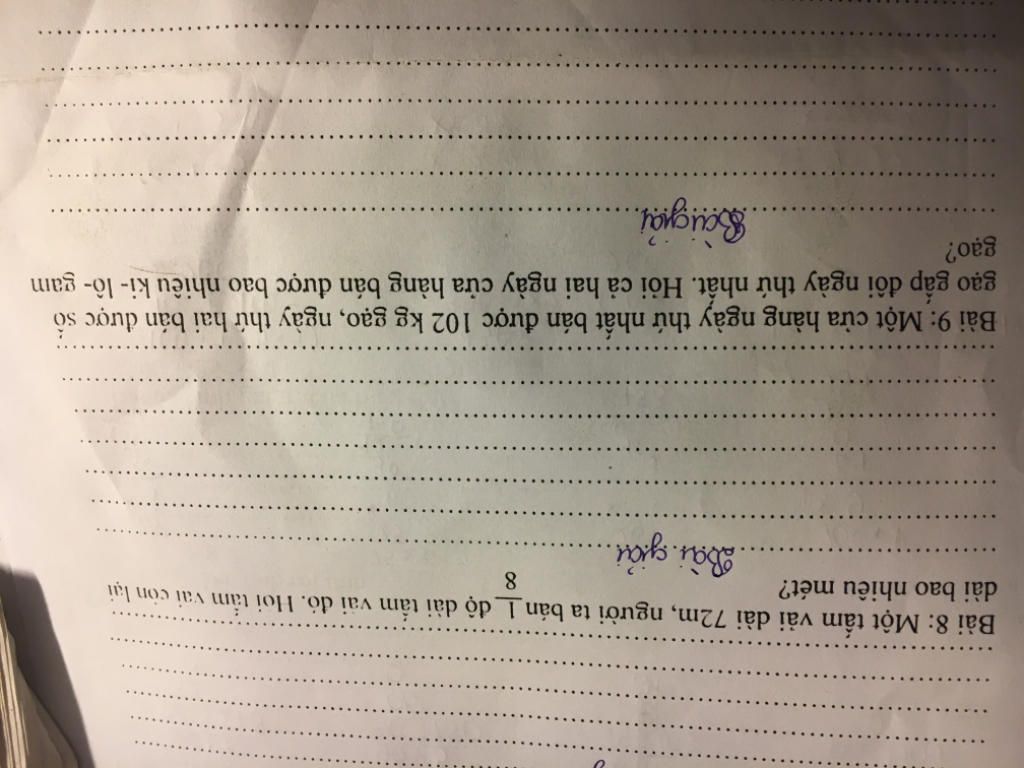 Bài 8: Một tấm vải dài 72m, người ta bán 1/8 độ dài tấm vải đó. Hỏi tấm vải còn lại
dài bao nhiêu mét?
Bài giải
Bài 9: Một cửa hàng ngày thứ nhất bán được 102 kg gạo, ngày thứ hai bán được số
gạo gấp đôi ngày thứ nhất. Hỏi cả hai ngày cửa hàng bán được bao nhiêu ki- lô- gam
gạo?
Bài giải